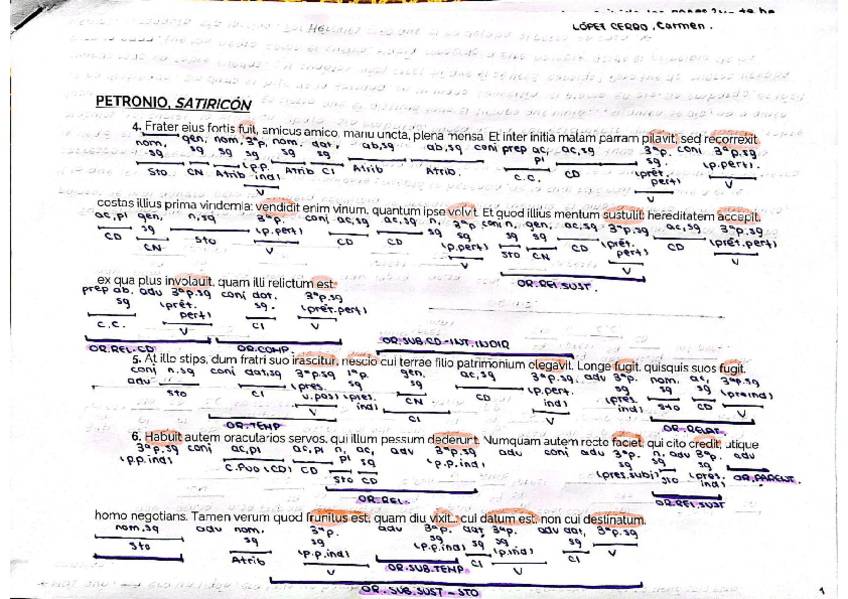 LÓPEZ CERRO, Carmen.
PETRONIO, SATIRICÓN
4. Frater eius fortis fuit, amicus amico, manu uncta, plena mensa. Et inter initia malam parram pilavit, sed recorrexit
nom, gen, nom, 3ªp, nom, dat, ab,sg ab,sg conj prep ac, ac,sg 3ªp. conj 3ªp.sg
sg sg sg sg sg sg pl sg. (p.pert)
Sto CN Atrib (p.p. ind) Atrib CI Atrib Atrib. C.C. CD (prét. pert) V
V V
costas illius prima vindemia: vendidit enim vinum, quantum ipse volvit. Et quod illius mentum sustulit: hereditatem accepit,
ac,pl gen, n,sg 3ªp. conj ac,sg ac,sg n, 3ªp conj n, gen, ac,sg 3ªp.sg ac,sg 3ªp.sg
CD sg Sto sg (p.pert) CD CD sg sg sg sg CD (prét. pert) CD (prét.pert)
CN V (p.pert) Sto CN V V
V OR.REL.SUST.
ex qua plus involauit, quam illi relictum est.
prep ab. adv 3ªp.sg conj dat. 3ªp.sg
sg (prét. pert) sg. (prét.pert)
C.C. V CI V
OR.REL-CD OR.COMP. OR.SUB.CD-INT.INDIR
5. At ille stips, dum fratri suo irascitur, nescio cui terrae filio patrimonium elegavit. Longe fugit, quisquis suos fugit.
conj n.sg conj dat,sg 3ªp.sg 1ªp. gen. ac,sg 3ªp.sg adv 3ªp. nom. ac, 3ªp.sg
adv Sto CI (pres. sg sg CD (p.pert. ind) sg sg (pre ind)
V CN V (pres. ind) Sto CD V
CI V
OR.TEMP OR.RELAT.
6. Habuit autem oracularios servos, qui illum pessum dederunt. Numquam autem recte faciet, qui cito credit, utique
3ªp.sg conj ac,pl ac,pl n, ac, adv 3ªp.sg adv conj adv 3ªp. n, adv 3ªp. adv
(p.p.ind) C.Pvo (CD) CD pl sg (p.p.ind) sg sg sg
V Sto CD V (pres.subi) Sto (pres. ind)
OR.REL. V V
OR.REL.SUST
homo negotians. Tamen verum quod frunitus est, quam diu vixit.: cui datum est, non cui destinatum.
nom,sg adv nom, 3ªp. adv 3ªp. dat, 3ªp.sg adv dat, 3ªp.sg
Sto sg sg sg sg (p.ind) sg V
Atrib (p.p.ind) (p.p.ind) CI V CI
V OR.SUB.TEMP
OR.SUB.SUST-STO
1